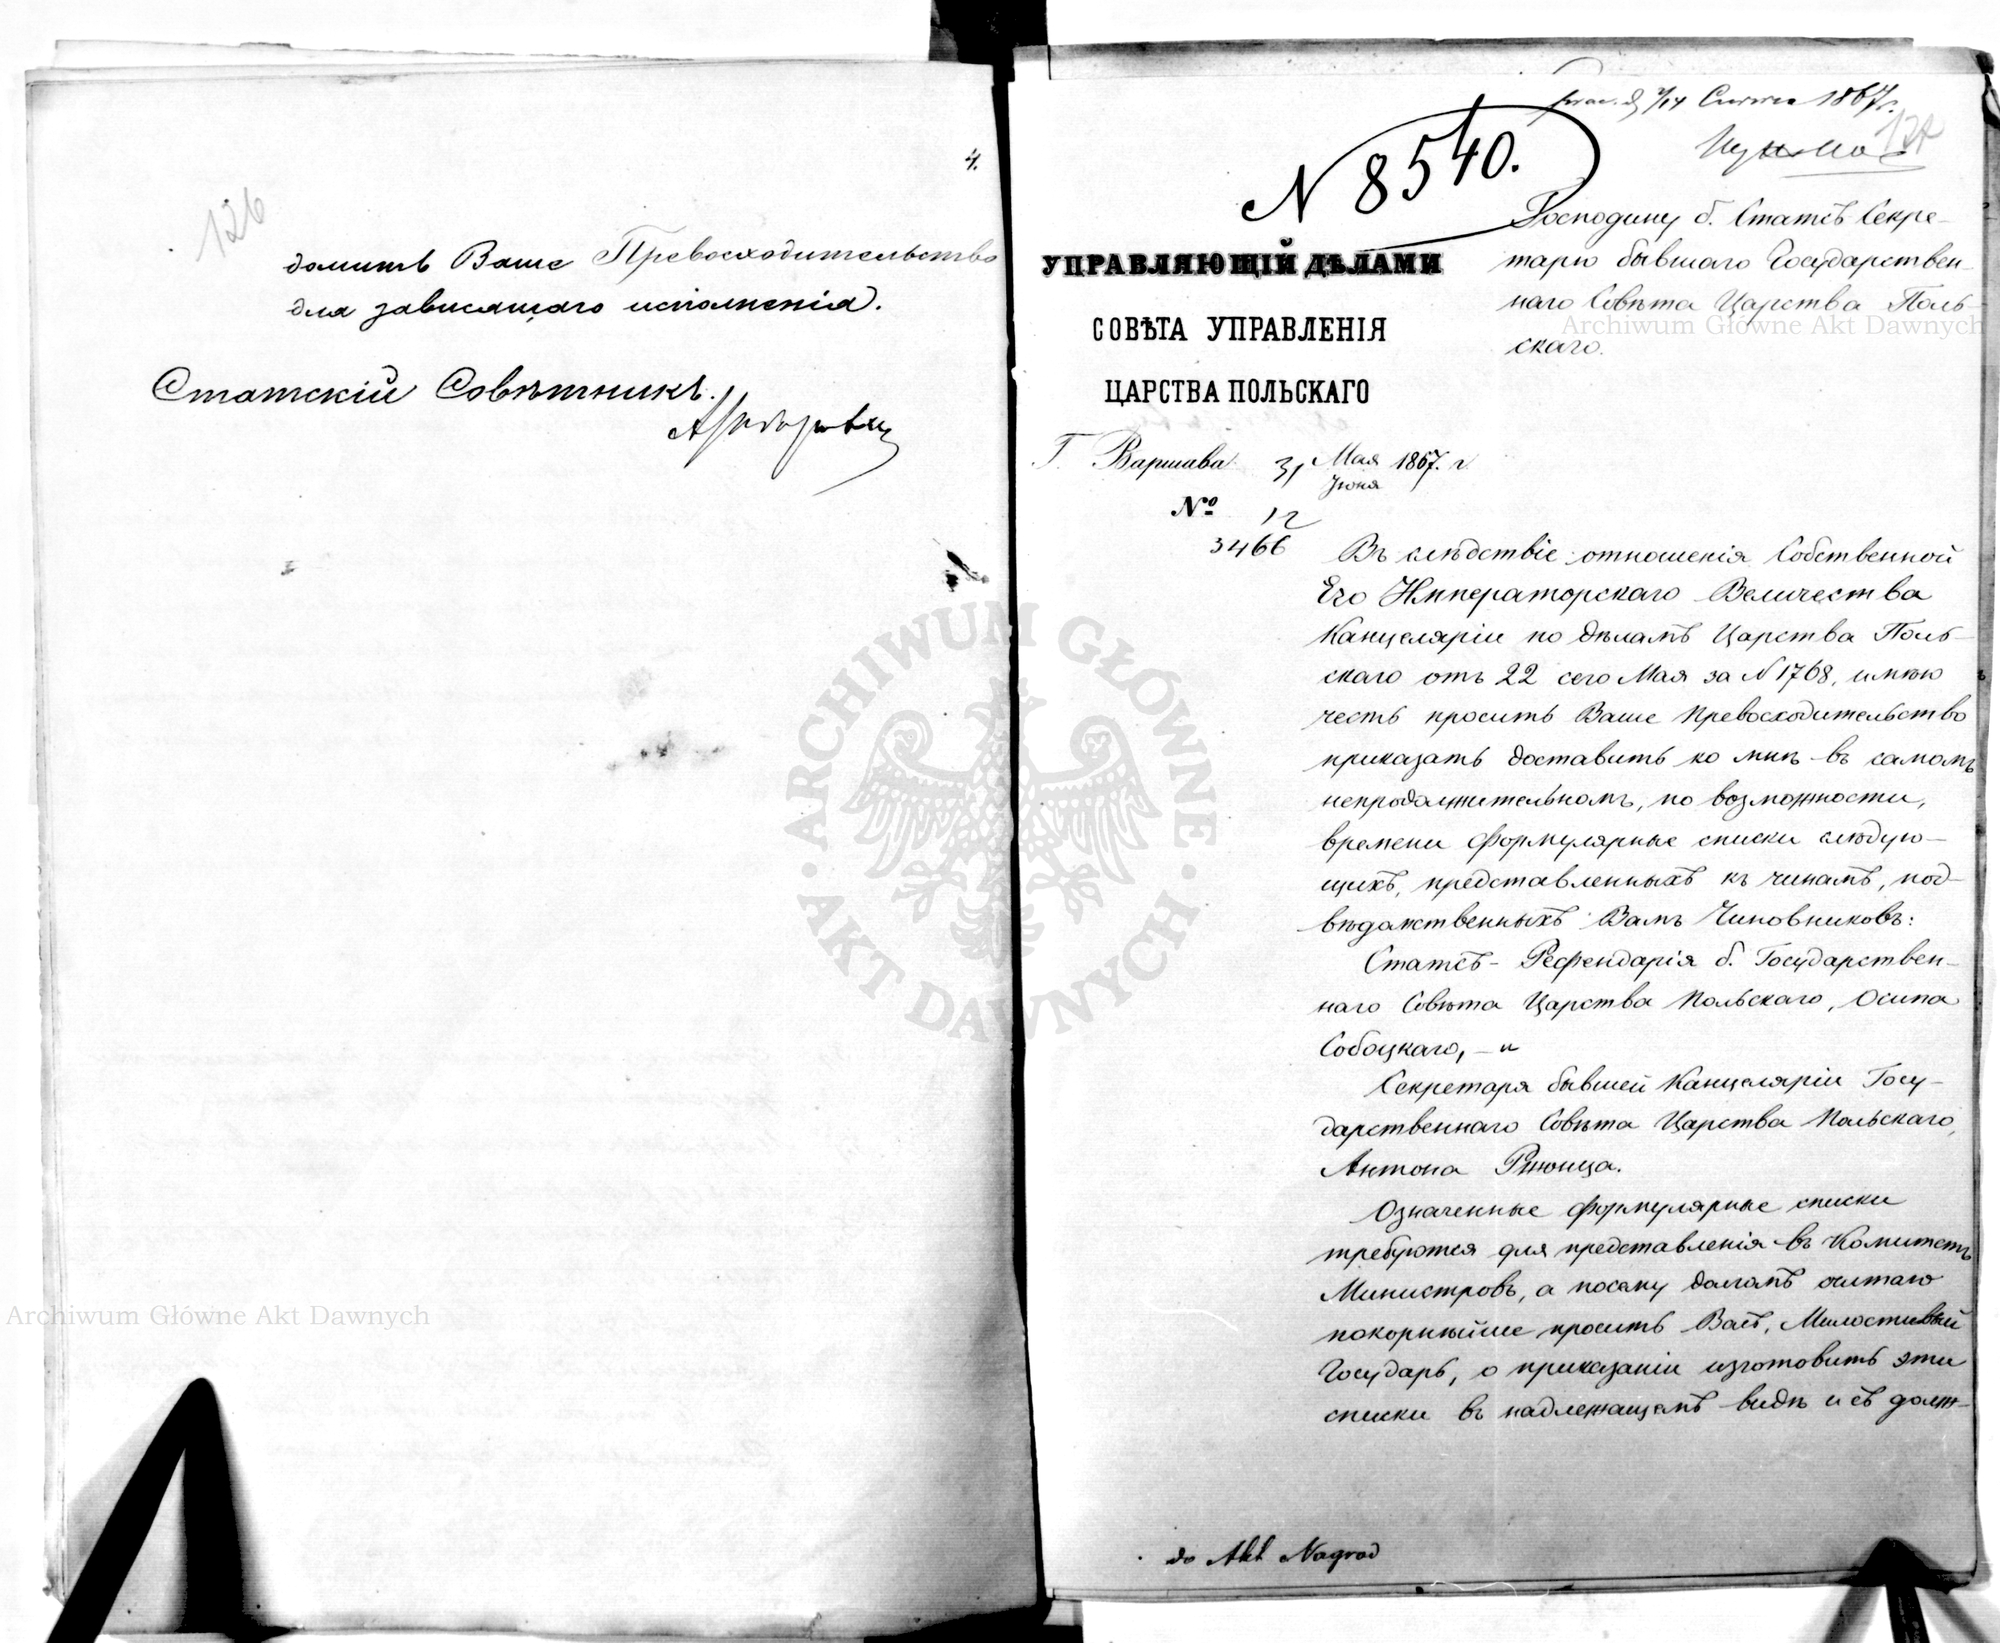 126
4.
домить Ваше Превосходительство
для зависящаго исполненія.
Статскій Совѣтникъ
Archiwum Główne Akt Dawnych
1867 г.
127
N 8540.
Господину б. Статсъ Секре-
тарю бывшаго Государствен-
наго Совѣта Царства Поль-
скаго.
Archiwum Główne Akt Dawnych
УПРАВЛЯЮЩІЙ ДѢЛАМИ
СОВѢТА УПРАВЛЕНІЯ
ЦАРСТВА ПОЛЬСКАГО
Г. Варшава 31 Мая 1867. г
Іюня
№ 12
3466
Въ слѣдствіе отношенія Собственной
Его Императорскаго Величества
Канцеляріи по дѣламъ Царства Поль-
скаго отъ 22 сего Мая за N 1768, имѣю
честь просить Ваше Превосходительство
приказать доставить ко мнѣ въ самомъ
непродолжительномъ, по возможности,
времени формулярные списки слѣдую-
щихъ, представленныхъ къ чинамъ, под-
вѣдомственныхъ Вамъ Чиновниковъ:
Статсъ-Референдарія б. Государствен-
наго Совѣта Царства Польскаго, Осипа
Собоцкаго, – и
Секретаря бывшей Канцеляріи Госу-
дарственнаго Совѣта Царства Польскаго,
Антона
Означенные формулярные списки
требуются для представленія въ Комитетъ
Министровъ, а посему долгомъ считаю
покорнѣйше просить Васъ, Милостивый
Государь, о приказаніи изготовить эти
списки въ надлежащемъ видѣ и съ долж-
do Akt Nagrod
ARCHIWUM GŁÓWNE · AKT DAWNYCH ·